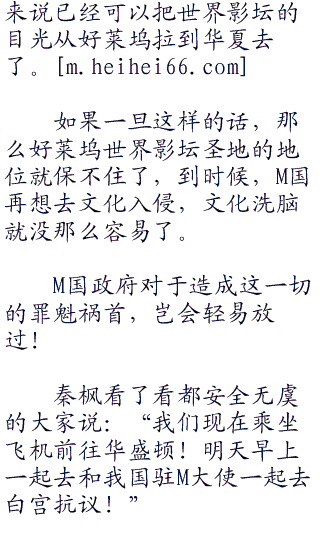 来说已经可以把世界影坛的
目光从好莱坞拉到华夏去
了。[m.heihei66.com]
如果一旦这样的话，那
么好莱坞世界影坛圣地的地
位就保不住了，到时候，M国
再想去文化入侵，文化洗脑
就没那么容易了。
M国政府对于造成这一切
的罪魁祸首，岂会轻易放
过！
秦枫看了看都安全无虞
的大家说：“我们现在乘坐
飞机前往华盛顿！明天早上
一起去和我国驻M大使一起去
白宫抗议！”